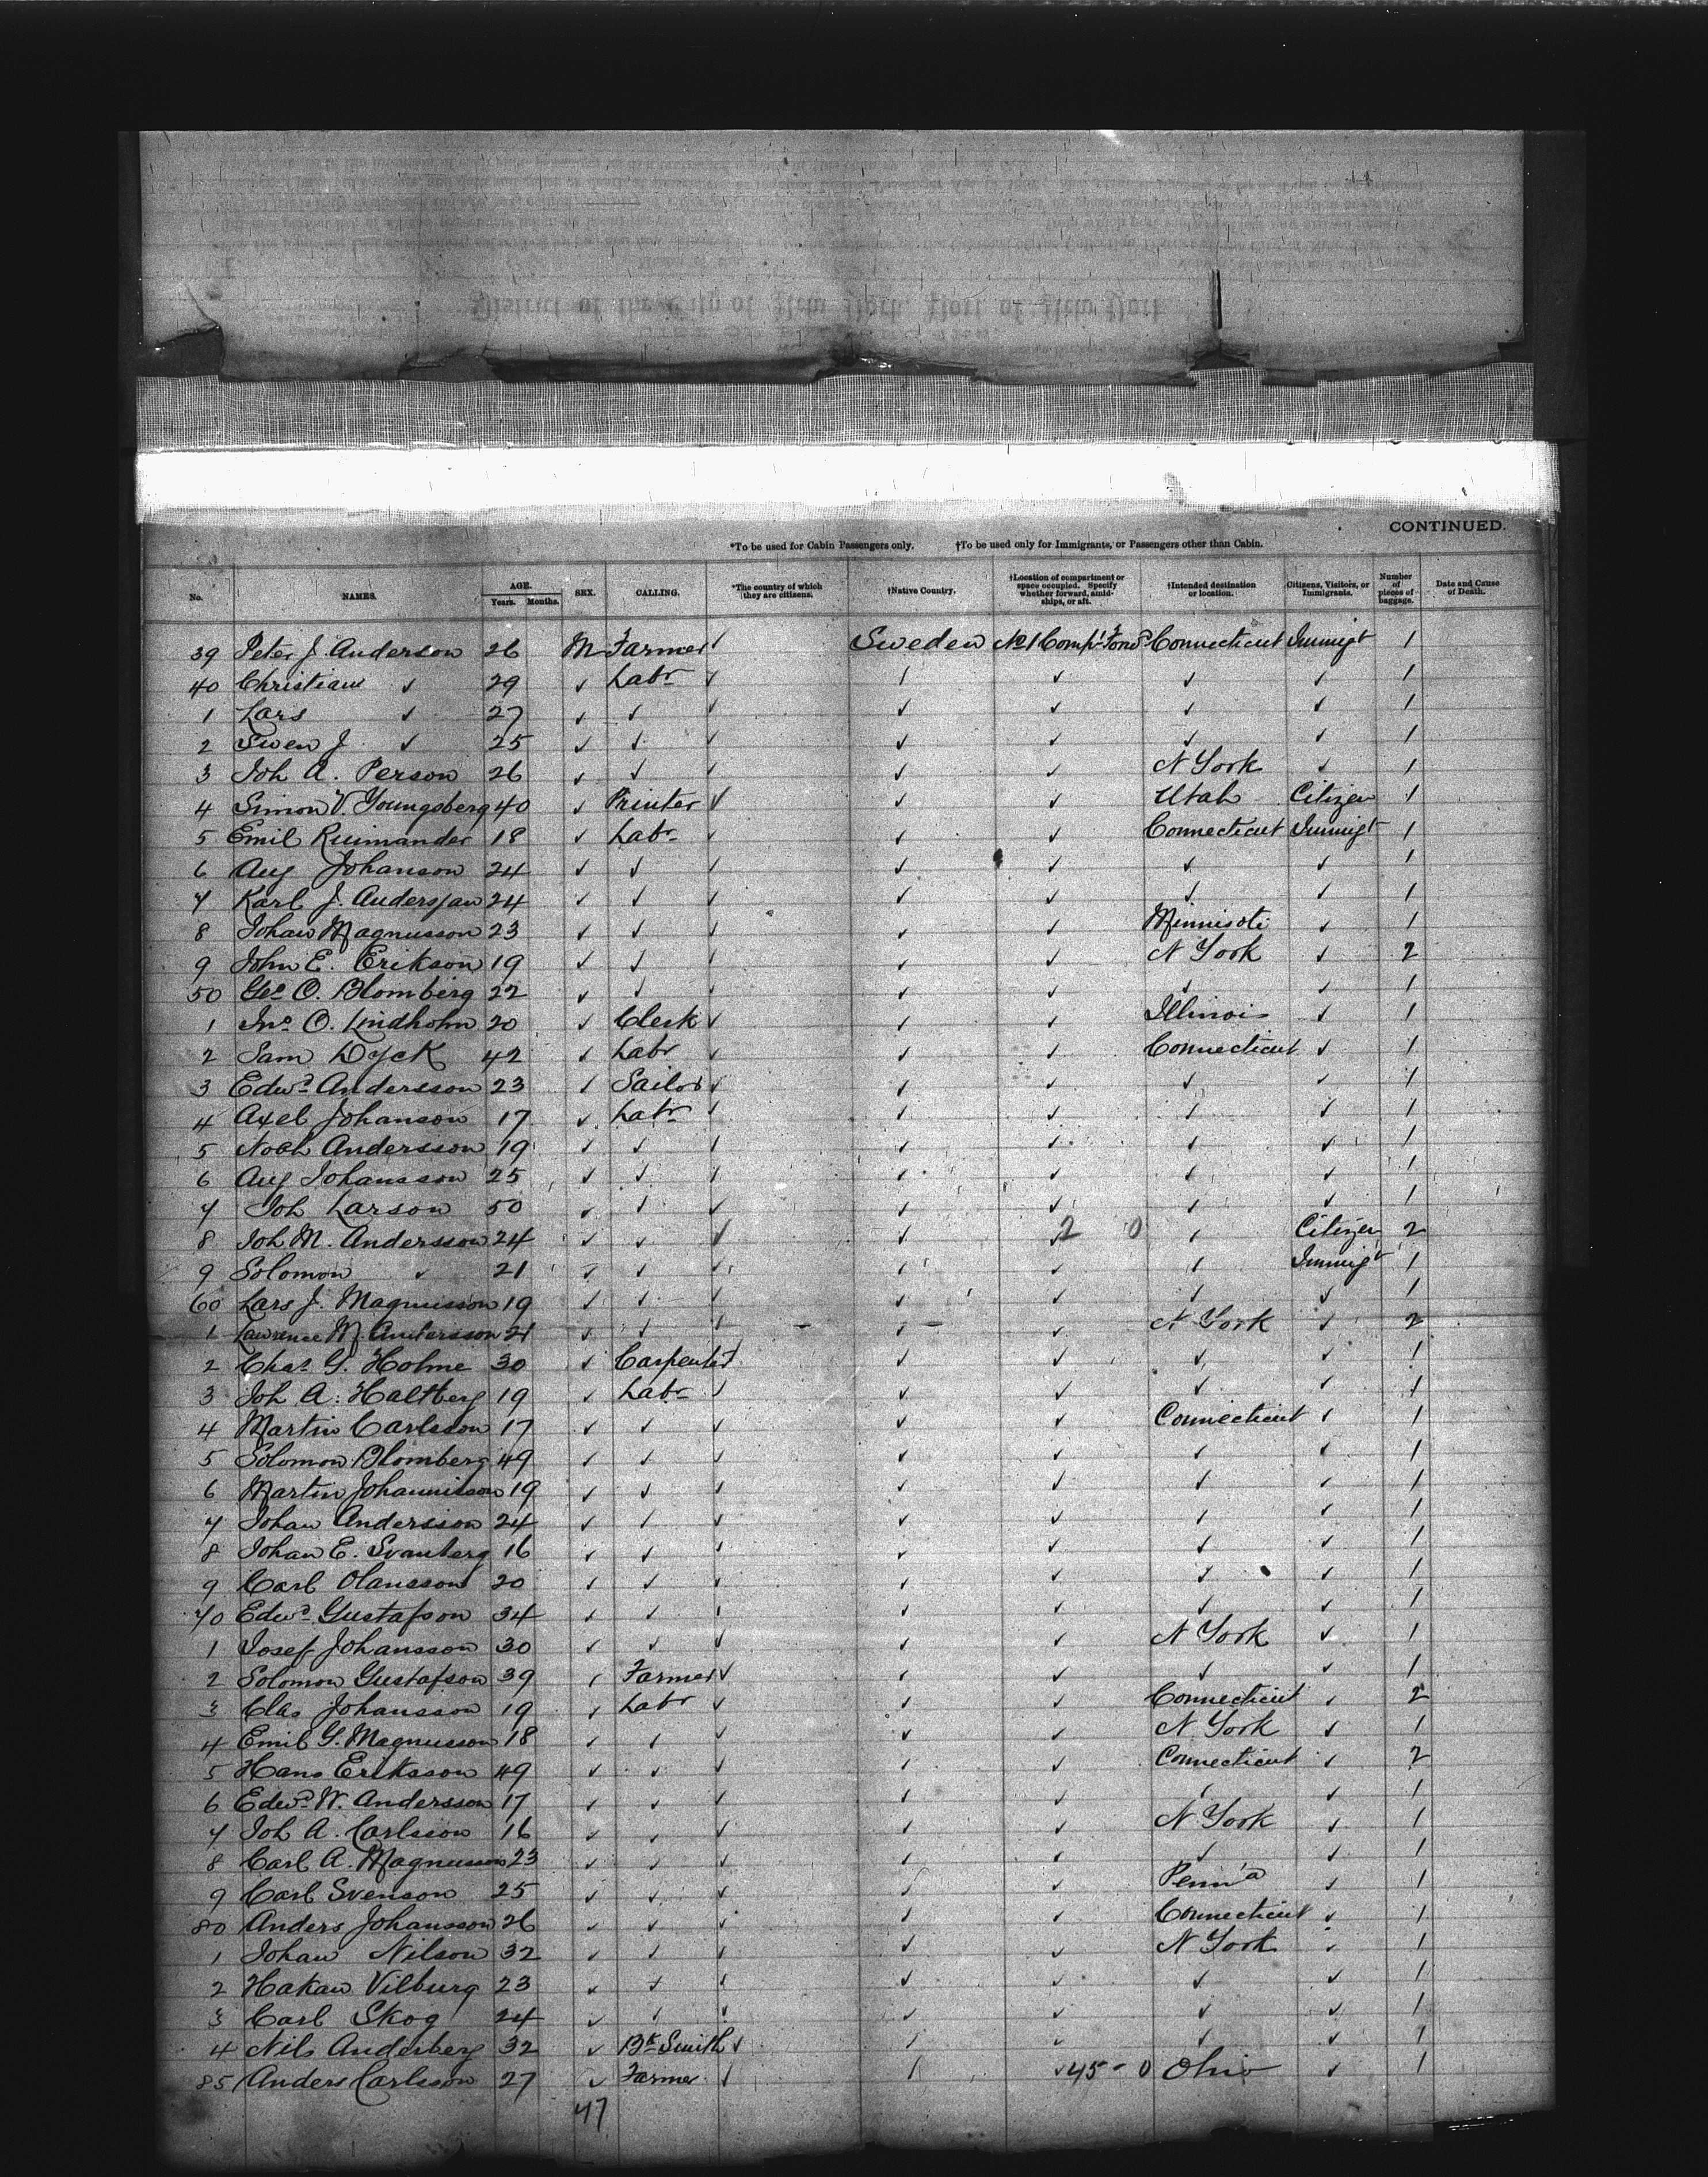 District of the City of New York, Port of New York
CONTINUED.
*To be used for Cabin Passengers only. †To be used only for Immigrants, or Passengers other than Cabin.
No. NAMES. AGE. Years. Months. SEX. CALLING. *The country of which they are citizens. †Native Country. †Location of compartment or space occupied. Specify whether forward, amidships, or aft. †Intended destination or location. Citizens, Visitors, or Immigrants. Number of pieces of baggage. Date and Cause of Death.
39 Peter J. Anderson 26 M Farmer ✓ Sweden No 1 Compt Forwd Connecticut Immigt 1
40 Christian ✓ 29 ✓ Labr ✓ ✓ ✓ ✓ ✓ 1
1 Lars ✓ 27 ✓ ✓ ✓ ✓ ✓ ✓ ✓ 1
2 Swen J. ✓ 25 ✓ ✓ ✓ ✓ ✓ ✓ ✓ 1
3 Joh A. Person 26 ✓ ✓ ✓ ✓ ✓ N York ✓ 1
4 Simon V. Youngsberg 40 ✓ Printer ✓ ✓ ✓ Utah Citizen 1
5 Emil Ruimander 18 ✓ Labr ✓ ✓ ✓ Connecticut Immigt 1
6 Aug Johanson 24 ✓ ✓ ✓ ✓ ✓ ✓ ✓ 1
7 Karl J. Andersson 24 ✓ ✓ ✓ ✓ ✓ ✓ ✓ 1
8 Johan Magnusson 23 ✓ ✓ ✓ ✓ ✓ Minnisoti ✓ 1
9 John E. Erikson 19 ✓ ✓ ✓ ✓ ✓ N York ✓ 2
50 Geo O. Blomberg 22 ✓ ✓ ✓ ✓ ✓ ✓ ✓ 1
1 Jno O. Lindholm 20 ✓ Clerk ✓ ✓ ✓ Illinois ✓ 1
2 Sam Dyck 42 ✓ Labr ✓ ✓ ✓ Connecticut ✓ 1
3 Edwd Andersson 23 ✓ Sailor ✓ ✓ ✓ ✓ ✓ 1
4 Axel Johanson 17 ✓ Labr ✓ ✓ ✓ ✓ ✓ 1
5 Noah Andersson 19 ✓ ✓ ✓ ✓ ✓ ✓ ✓ 1
6 Aug Johansson 25 ✓ ✓ ✓ ✓ ✓ ✓ ✓ 1
7 Joh Larson 50 ✓ ✓ ✓ ✓ ✓ ✓ ✓ 1
8 Joh M. Andersson 24 ✓ ✓ ✓ ✓ ✓ 2 0 ✓ Citizen 2
9 Solomon ✓ 21 ✓ ✓ ✓ ✓ ✓ ✓ Immigt 1
60 Lars J. Magnusson 19 ✓ ✓ ✓ ✓ ✓ ✓ ✓ 1
1 Lawrence M. Andersson 21 ✓ ✓ ✓ ✓ ✓ N York ✓ 2
2 Chas. G. Holme 30 ✓ Carpenter ✓ ✓ ✓ ✓ ✓ 1
3 Joh A. Haltberg 19 ✓ Labr ✓ ✓ ✓ ✓ ✓ 1
4 Martin Carlsson 17 ✓ ✓ ✓ ✓ ✓ Connecticut ✓ 1
5 Solomon Blomberg 49 ✓ ✓ ✓ ✓ ✓ ✓ ✓ 1
6 Martin Johannisson 19 ✓ ✓ ✓ ✓ ✓ ✓ ✓ 1
7 Johan Andersson 24 ✓ ✓ ✓ ✓ ✓ ✓ ✓ 1
8 Johan E. Svanberg 16 ✓ ✓ ✓ ✓ ✓ ✓ ✓ 1
9 Carl Olansson 20 ✓ ✓ ✓ ✓ ✓ ✓ ✓ 1
70 Edwd Gustafson 34 ✓ ✓ ✓ ✓ ✓ ✓ ✓ 1
1 Josef Johansson 30 ✓ ✓ ✓ ✓ ✓ N York ✓ 1
2 Solomon Gustafson 39 ✓ Farmer ✓ ✓ ✓ ✓ ✓ 1
3 Clas Johansson 19 ✓ Labr ✓ ✓ ✓ Connecticut ✓ 2
4 Emil G. Magnusson 18 ✓ ✓ ✓ ✓ ✓ N York ✓ 1
5 Hans Eriksson 49 ✓ ✓ ✓ ✓ ✓ Connecticut ✓ 2
6 Edwd W. Andersson 17 ✓ ✓ ✓ ✓ ✓ ✓ ✓ 1
7 Joh A. Carlsson 16 ✓ ✓ ✓ ✓ ✓ N York ✓ 1
8 Carl A. Magnusson 23 ✓ ✓ ✓ ✓ ✓ ✓ ✓ 1
9 Carl Svenson 25 ✓ ✓ ✓ ✓ ✓ Penn'a ✓ 1
80 Anders Johansson 26 ✓ ✓ ✓ ✓ ✓ Connecticut ✓ 1
1 Johan Nilson 32 ✓ ✓ ✓ ✓ ✓ N York ✓ 1
2 Hakan Vilburg 23 ✓ ✓ ✓ ✓ ✓ ✓ ✓ 1
3 Carl Skog 24 ✓ ✓ ✓ ✓ ✓ ✓ ✓ 1
4 Nils Anderberg 32 ✓ Bk Smith ✓ ✓ ✓ ✓ ✓ 1
85 Anders Carlsson 27 ✓ Farmer ✓ ✓ ✓ 45 - 0 Ohio ✓ 1
47